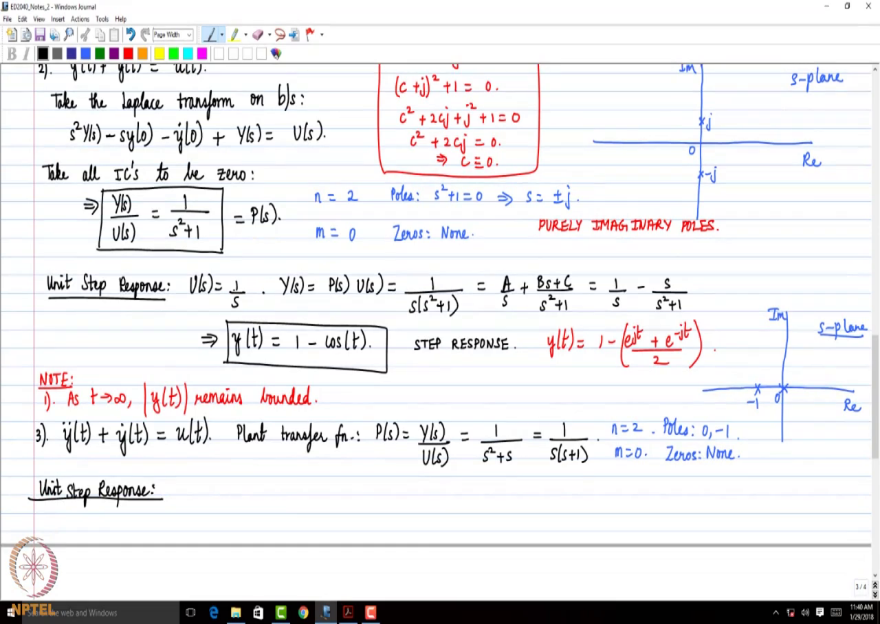 ED2040_Notes_2 - Windows Journal
File Edit View Insert Actions Tools Help
Page Width
2). ÿ(t) + y(t) = u(t).
Take the Laplace transform on b/s:
s²Y(s) - sy(0) - ẏ(0) + Y(s) = U(s).
Take all IC's to be zero:
⇒ Y(s)/U(s) = 1/(s²+1) = P(s).
(c+j)² + 1 = 0.
c² + 2cj + j² + 1 = 0
c² + 2cj = 0.
⇒ c = 0.
n = 2 Poles: s²+1=0 ⇒ s = ±j.
m = 0 Zeros: None.
PURELY IMAGINARY POLES.
Im
s-plane
j
0
Re
-j
Unit Step Response: U(s) = 1/s . Y(s) = P(s) U(s) = 1/(s(s²+1)) = A/s + (Bs+C)/(s²+1) = 1/s - s/(s²+1)
⇒ y(t) = 1 - cos(t). STEP RESPONSE. y(t) = 1 - ((e^jt + e^-jt)/2).
NOTE:
1). As t→∞, |y(t)| remains bounded.
Im
s-plane
-1 0
Re
3). ÿ(t) + ẏ(t) = u(t). Plant transfer fn.: P(s) = Y(s)/U(s) = 1/(s²+s) = 1/(s(s+1)) . n=2 . Poles: 0, -1.
m=0. Zeros: None.
Unit Step Response:
3 / 4
NPTEL
the web and Windows
11:40 AM
1/29/2018